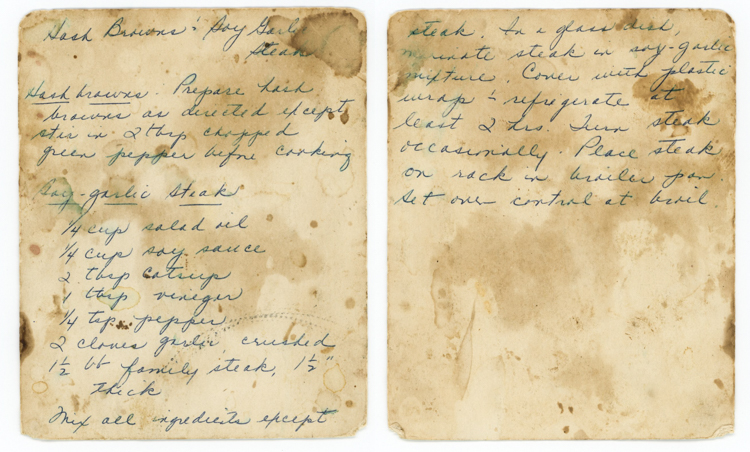 Hash Browns & Soy Garlic
Steak
Hash browns. Prepare hash
browns as directed except
stir in 2 tbsp chopped
green pepper before cooking
Soy-garlic Steak
1/4 cup salad oil
1/4 cup soy sauce
2 tbsp catsup
1 tbsp vinegar
1/4 tsp pepper
2 cloves garlic crushed
1 1/2 lb family steak, 1 1/2"
thick
Mix all ingredients except
steak. In a glass dish,
marinate steak in soy-garlic
mixture. Cover with plastic
wrap & refrigerate at
least 2 hrs. Turn steak
occasionally. Place steak
on rack in broiler pan.
Set oven control at broil.